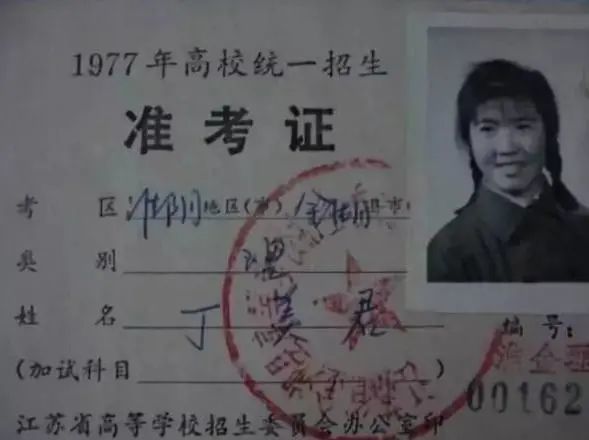 1977年高校统一招生
准考证
考 区 淮阴 地区(市) 县市
类 别 理
姓 名 丁 美 君
(加试科目 )
编号:
00162
江苏省高等学校招生委员会办公室印